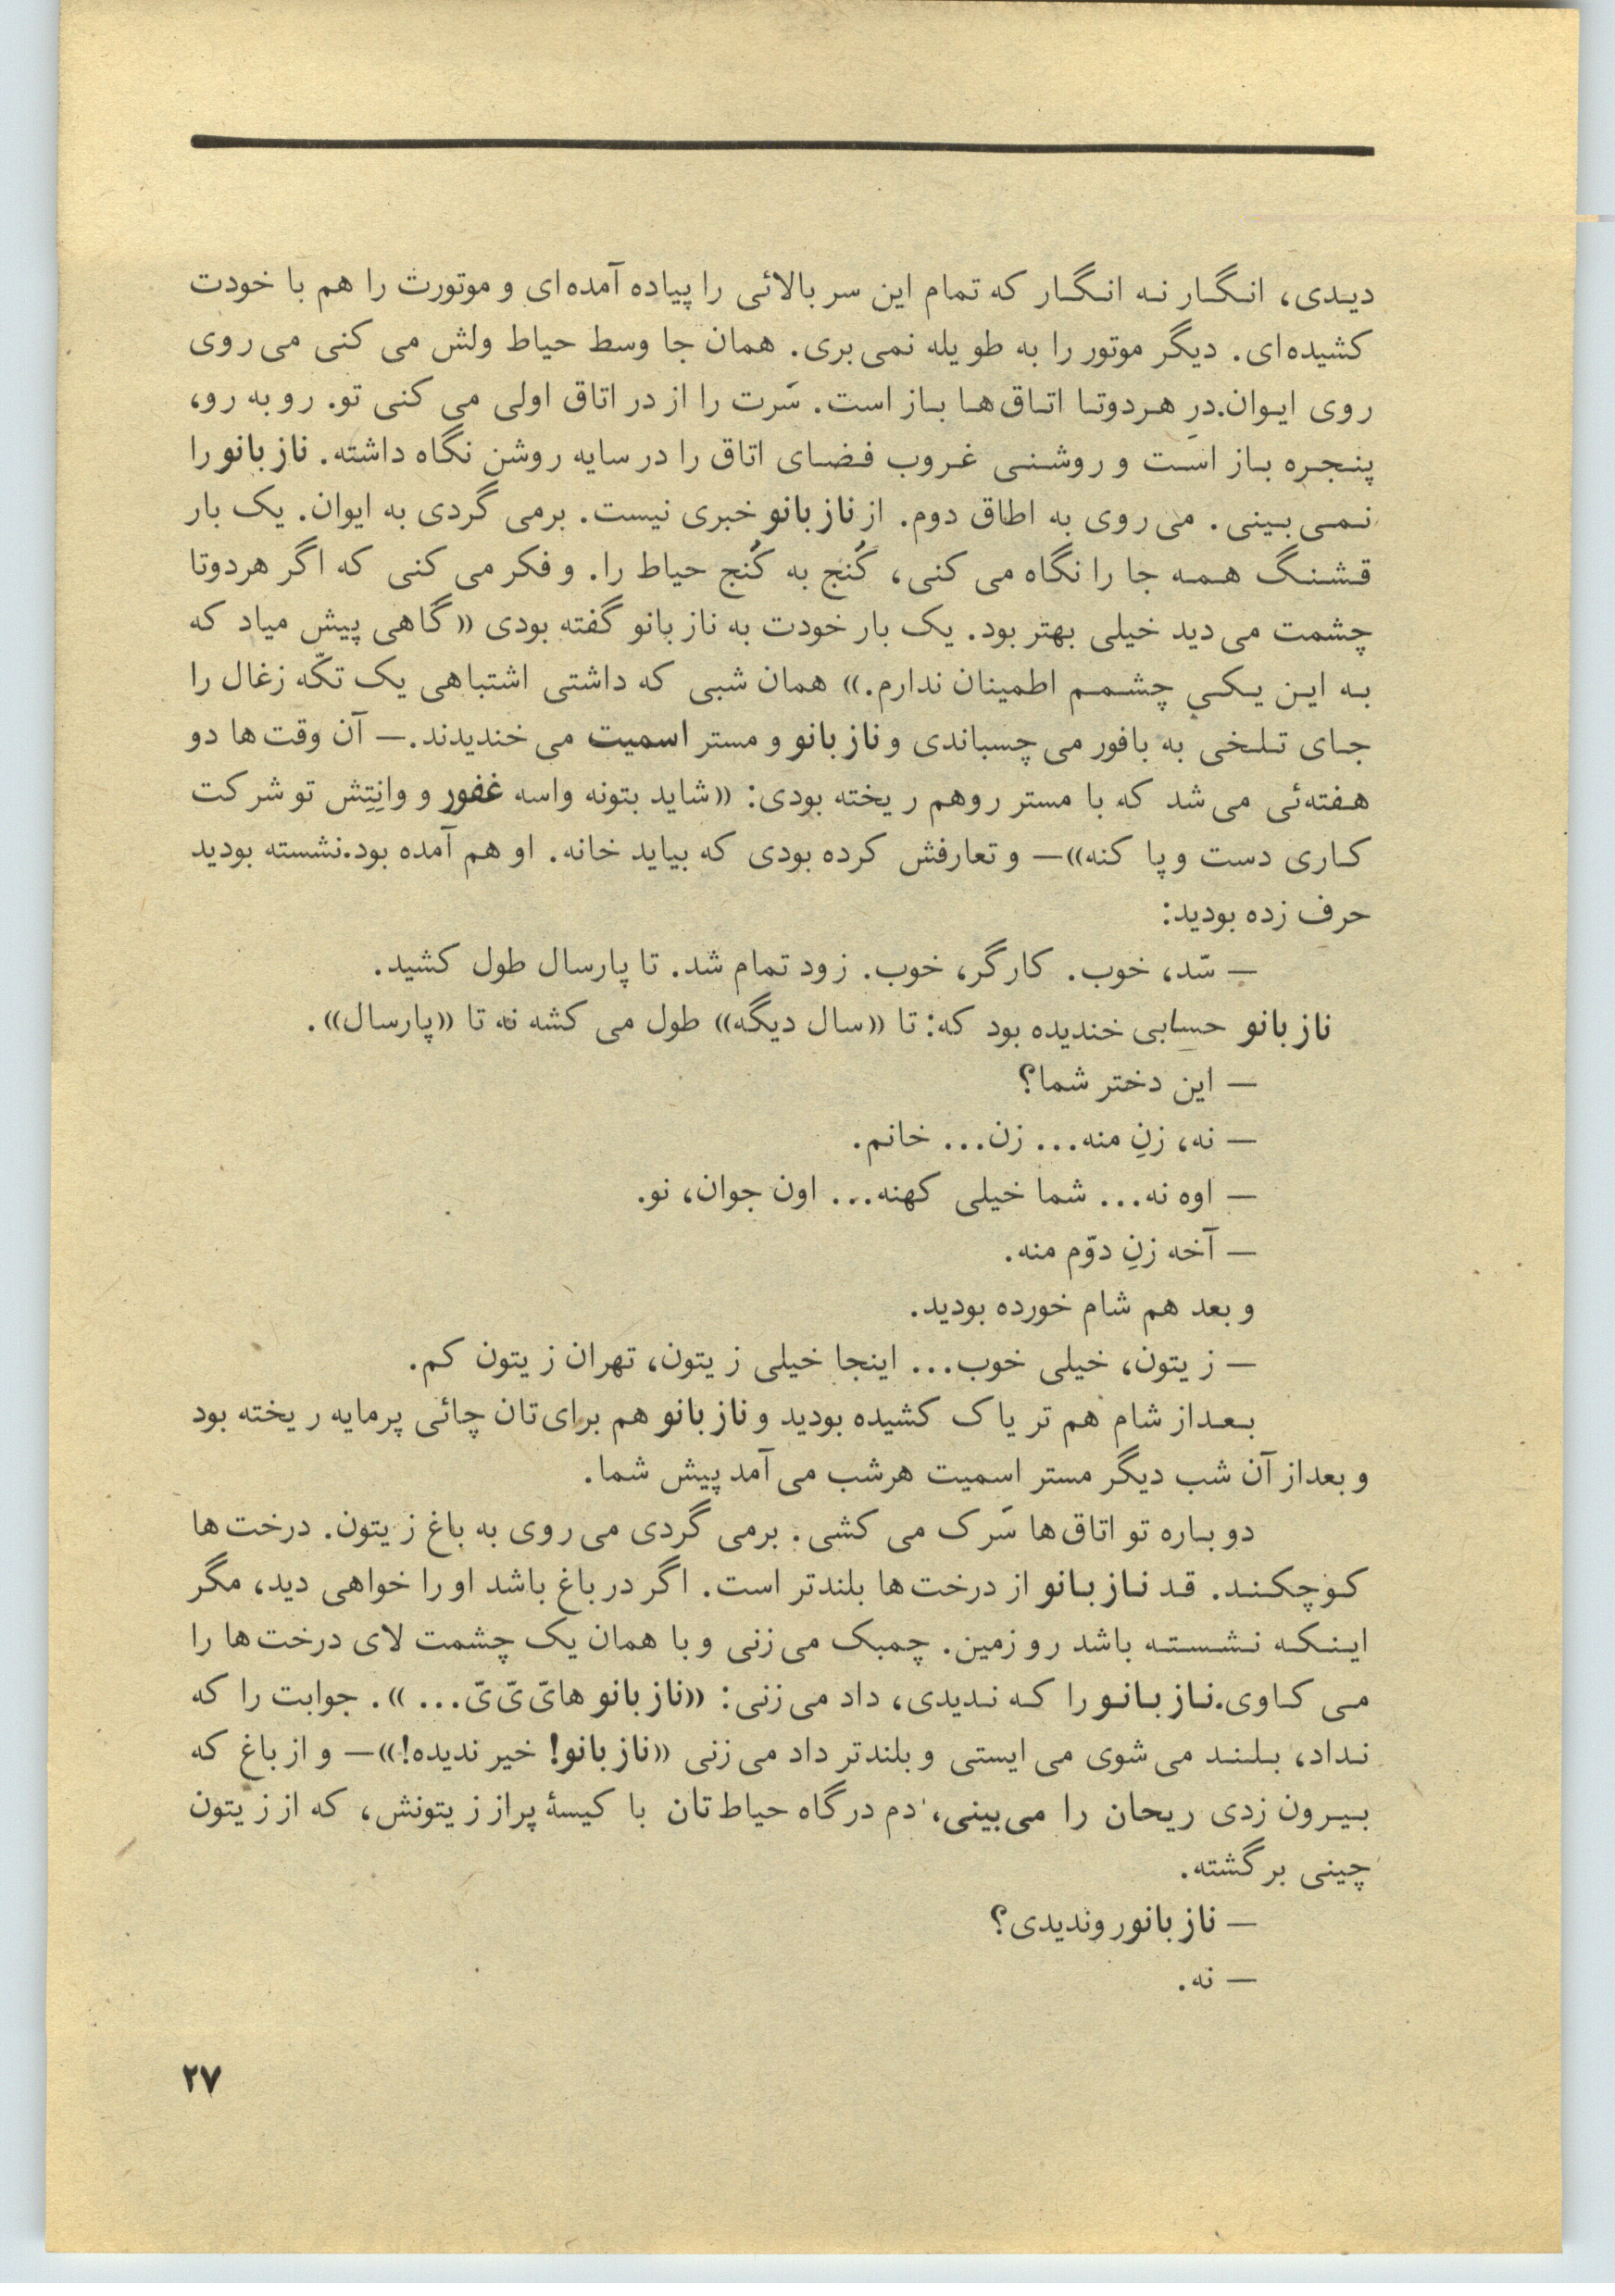 دیدی، انگار نه انگار که تمام این سربالائی را پیاده آمده‌ای و موتورت را هم با خودت
کشیده‌ای. دیگر موتور را به طویله نمی‌بری. همان جا وسط حیاط ولش می‌کنی می‌روی
روی ایوان. درِ هردوتا اتاق‌ها باز است. سَرت را از در اتاق اولی می‌کنی تو. روبه‌رو،
پنجره باز است و روشنی غروب فضای اتاق را در سایه روشن نگاه داشته. نازبانو را
نمی‌بینی. می‌روی به اطاق دوم. از نازبانو خبری نیست. برمی‌گردی به ایوان. یک بار
قشنگ همه جا را نگاه می‌کنی، کُنج به کُنج حیاط را. و فکر می‌کنی که اگر هردوتا
چشمت می‌دید خیلی بهتر بود. یک بار خودت به نازبانو گفته بودی «گاهی پیش میاد که
به این یکیِ چشمم اطمینان ندارم.» همان شبی که داشتی اشتباهی یک تکّه زغال را
جای تلخی به بافور می‌چسباندی و نازبانو و مستر اسمیت می‌خندیدند.— آن وقت‌ها دو
هفته‌ئی می‌شد که با مستر روهم ریخته بودی: «شاید بتونه واسه غفور و وانِتِش تو شرکت
کاری دست و پا کنه»— و تعارفش کرده بودی که بیاید خانه. او هم آمده بود. نشسته بودید
حرف زده بودید:
— سّد، خوب. کارگر، خوب. زود تمام شد. تا پارسال طول کشید.
نازبانو حسابی خندیده بود که: تا «سال دیگه» طول می‌کشه نه تا «پارسال».
— این دختر شما؟
— نه، زنِ منه... زن... خانم.
— اوه نه... شما خیلی کهنه... اون جوان، نو.
— آخه زنِ دوّم منه.
و بعد هم شام خورده بودید.
— زیتون، خیلی خوب... اینجا خیلی زیتون، تهران زیتون کم.
بعداز شام هم تریاک کشیده بودید و نازبانو هم برای‌تان چائی پرمایه ریخته بود
و بعداز آن شب دیگر مستر اسمیت هرشب می‌آمد پیش شما.
دوباره تو اتاق‌ها سَرک می‌کشی. برمی‌گردی می‌روی به باغ زیتون. درخت‌ها
کوچکند. قد نازبانو از درخت‌ها بلندتر است. اگر در باغ باشد او را خواهی دید، مگر
اینکه نشسته باشد رو زمین. چمبک می‌زنی و با همان یک چشمت لای درخت‌ها را
می‌کاوی. نازبانو را که ندیدی، داد می‌زنی: «نازبانو هایّ‌یّ‌یّ...». جوابت را که
نداد، بلند می‌شوی می‌ایستی و بلندتر داد می‌زنی «نازبانو! خیر ندیده!»— و از باغ که
بیرون زدی ریحان را می‌بینی، دم درگاه حیاط‌تان با کیسهٔ پراز زیتونش، که از زیتون
چینی برگشته.
— نازبانورو ندیدی؟
— نه.
۲۷